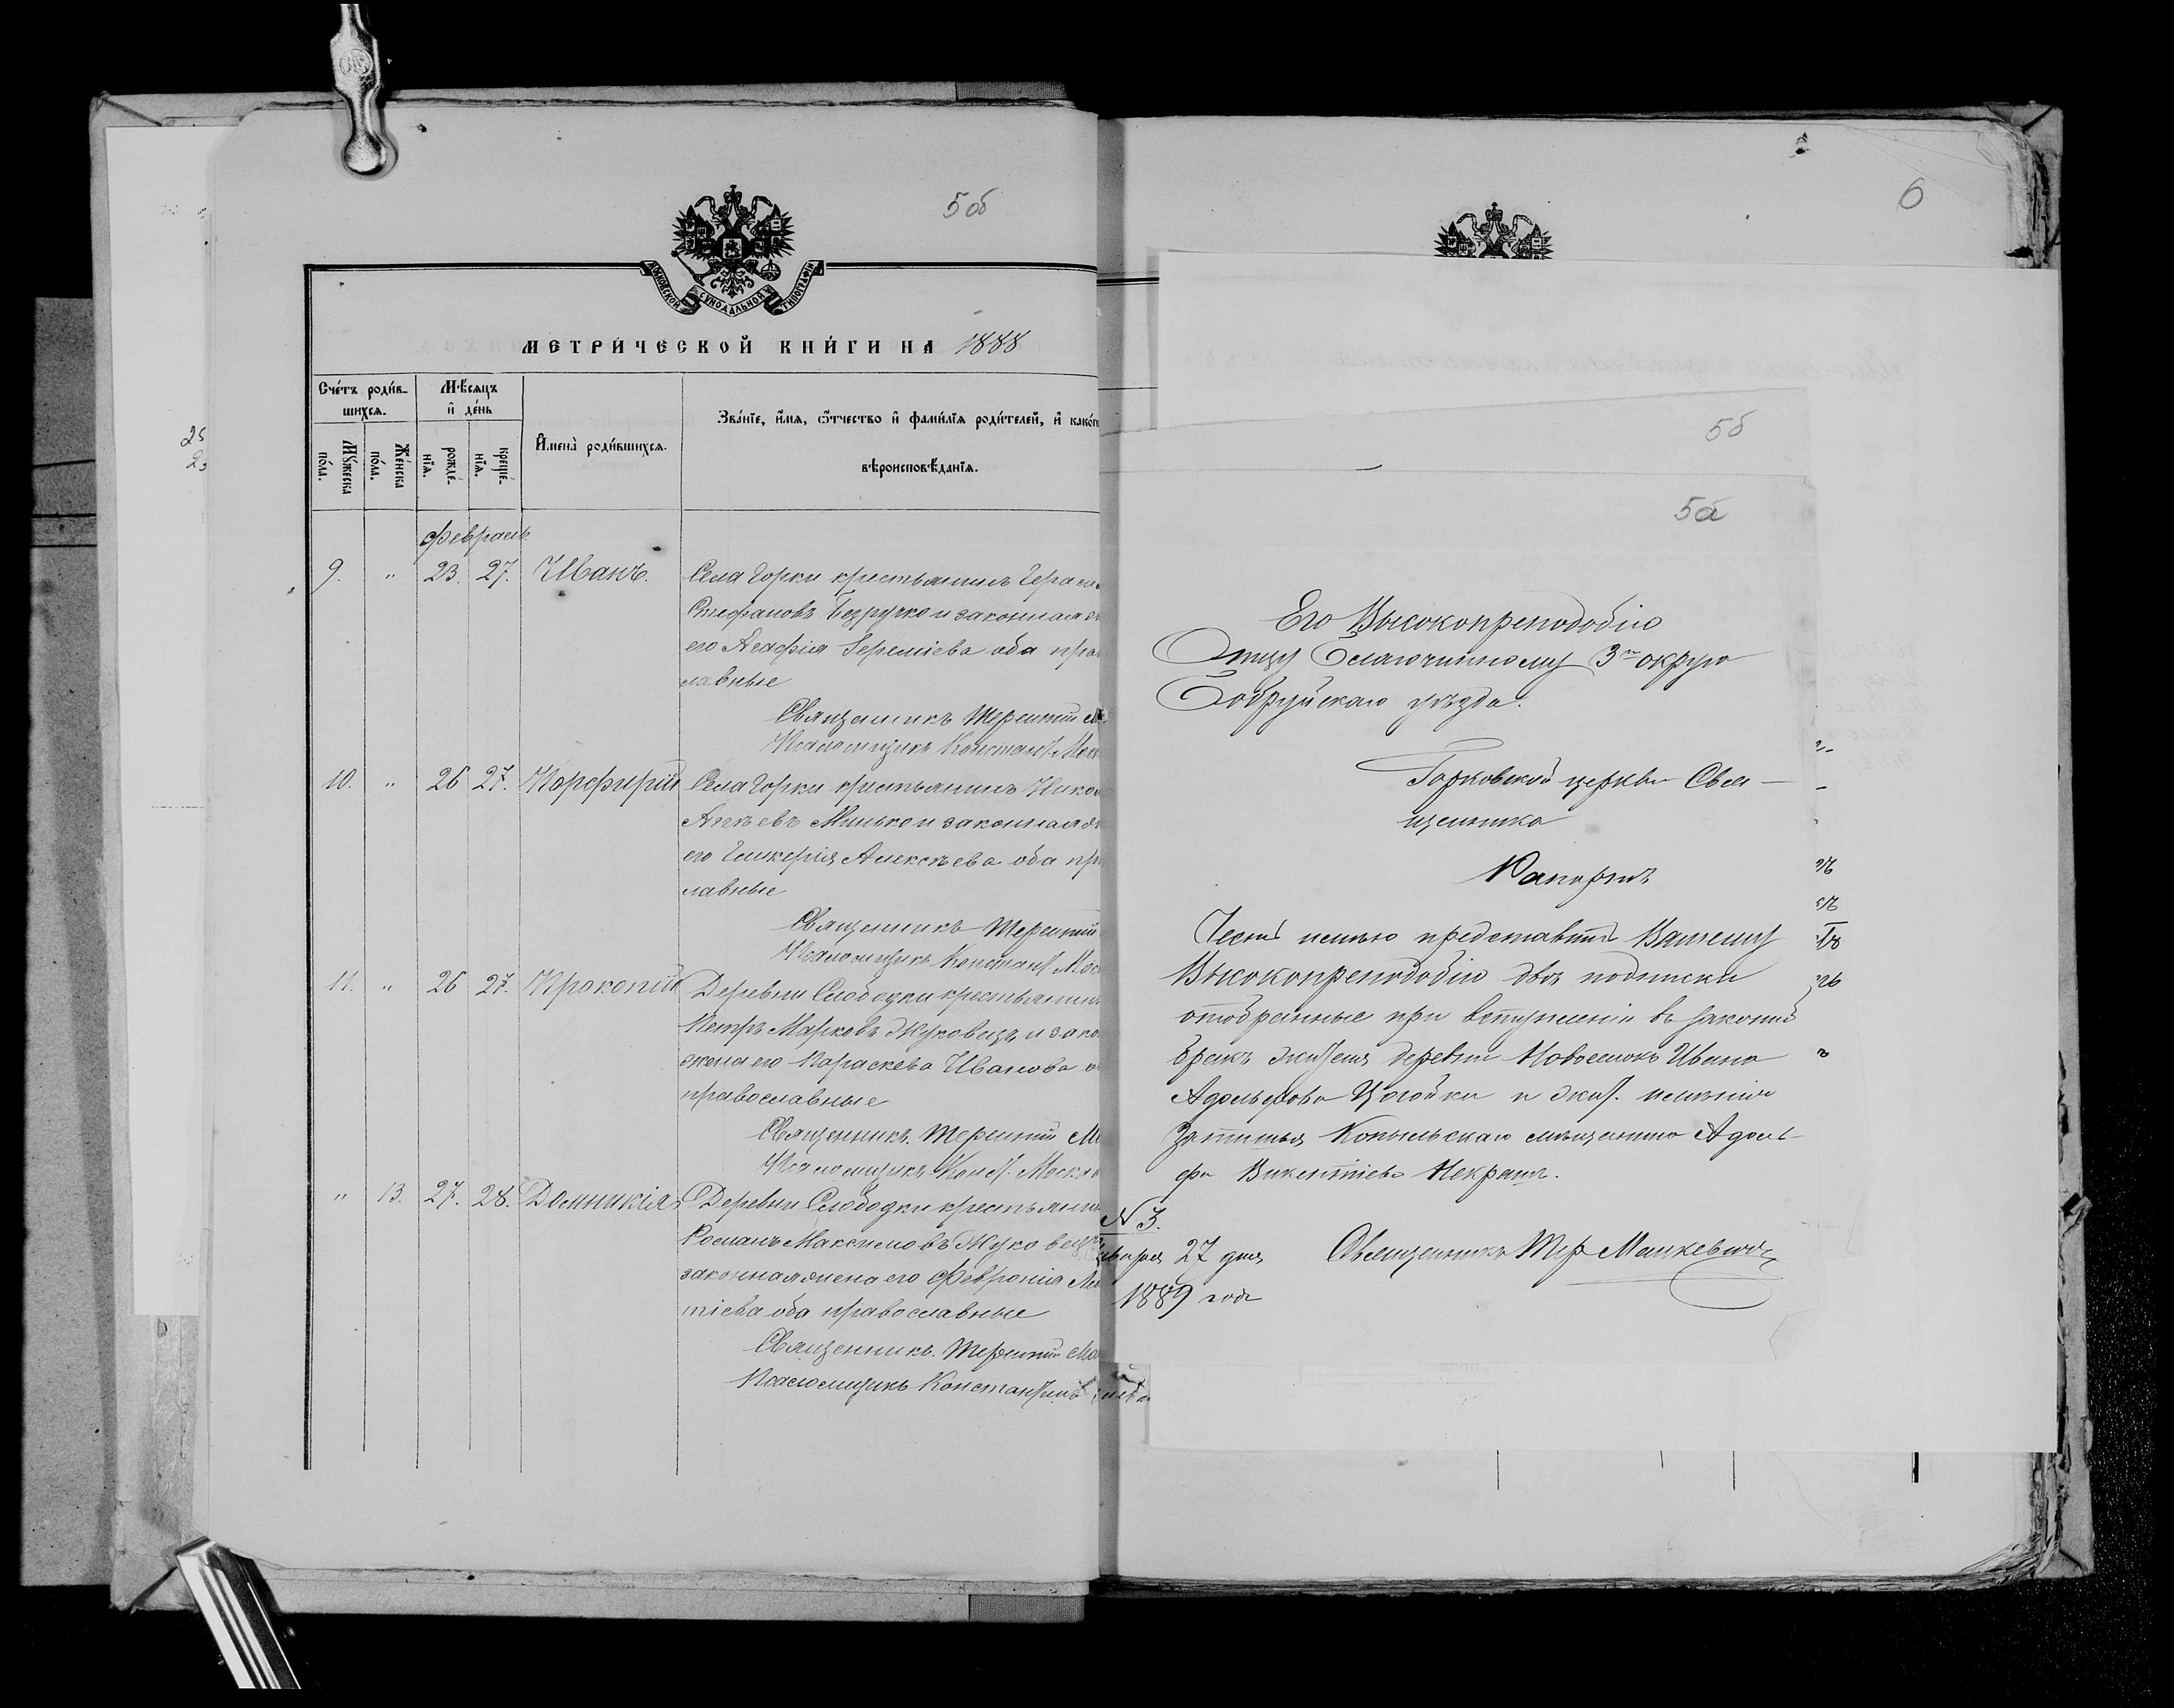 5 об
МОСКОВСКОЙ СУНОДАЛЬНОЙ ТИПОГРАФІИ
МЕТРИ́ЧЕСКОЙ КНИ́ГИ НА 1888
Сче́тъ роди́в-
шихся.
Мѣ́сяцъ
и҆ де́нь
И҆мена̀ роди́вшихся.
Зва́нїе, и҆́мя, ѻ҆́тчество и҆ фами́лїя роди́телей, и҆ како́гѡ
вѣроисповѣ́данїя.
Мꙋ́жеска
по́ла.
Же́нска
по́ла.
рожде́-
нїя.
креще́-
нїя.
Февраль.
9. " 23. 27. Иванъ. Села Горки крестьянинъ Гераси
Стефановъ Безручко и законная
его Агафія Іереміева оба пра
лавные
Священникъ Терентій
Псаломщикъ Констант. Мос
10. " 26 27. Порфирій Села Горки крестьянинъ Нико
Минько и законная
его Гликерія Алексѣева оба пр
лавные
Священникъ Терентій
Псаломщикъ Констант. Мос
11. " 26 27. Прокопій Деревни Слободки крестьянин
Петръ Марковъ Жуковецъ и зако
жена его Параскева Иванова о
православные
Священникъ Терентій М
Псаломщикъ Конст. Моск
" 13. 27. 28. Домникія Деревни Слободки крестьянин
Романъ Максимовъ Жуковецъ
законная жена его Февронія
тіева оба православные
Священникъ Терентій Ма
Псаломщикъ Константинъ
6
5б
5а
Его Высокопреподобію
Отцу Благочинному 3го округа
Бобруйскаго уѣзда.
Горковской церкви Свя-
щенника
Рапортъ
Честь имѣю представить Вашему
Высокопреподобію двѣ подписки
отобранные при вступленіи въ законный
бракъ жителя деревни Новоселокъ Ивана
Адольфова Цогойки и жит. имѣнія
Затишья Копыльскаго мѣщанина Адоль-
фа Викентіева Некраша.
N 3.
нваря 27 дня
1889 года
Священникъ Тер. Манкевичъ